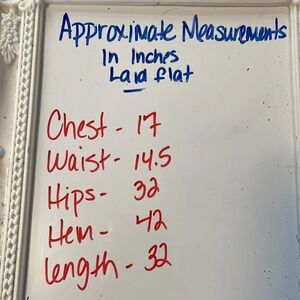 Approximate Measurements
In Inches
Laid flat
Chest - 17
Waist - 14.5
Hips - 32
Hem - 42
length - 32